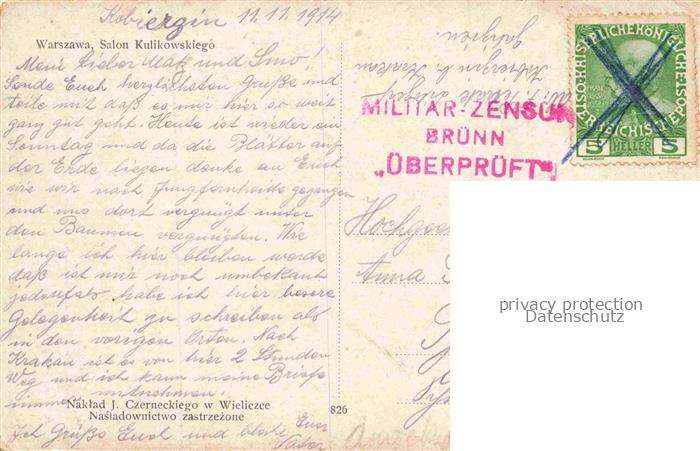 Kobierzin 11.11.1914
Warszawa, Salon Kulikowskiego
Mein Lieber Maks und
Sende Euch herzlichsten Gruße und
teile mit daß es mir hier so weit
ganz gut geht. Heute ist wieder ein
Sonntag und da die Blätter auf
der Erde liegen denke an Euch
wie wir nach Jungfernheide gegangen
und uns dort vergnügt unter
den Baumen vergnügten. Wie
lange ich hier bleiben werde
daß ist mir noch umbekant
jedenfals habe ich hier besere
Gelegenheit zu schreiben als
in den vorigen Orten. Nach
Krakau ist es von hier 2 Stunden
Weg und ich kann meine Briefe
immer mitnehmen.
Nakład J. Czerneckiego w Wieliczce
Naśladownictwo zastrzeżone
Ich Grüße Euch und bleibe Euer
826
Kobierzin b. Krakau
Galizien.
MILITÄR-ZENSUR
BRÜNN
„ÜBERPRÜFT"
5 HELLER 5
Anna
privacy protection
Datenschutz